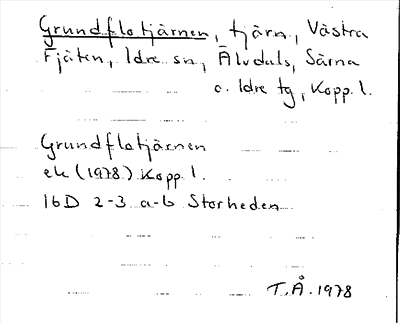 Grundflotjärnen, tjärn, Västra
Fjäten, Idre sn, Älvdals, Särna
o. Idre tg, Kopp. l.
Grundflotjärnen
ek (1978) Kopp. l.
16D 2-3 a-b Storheden
T.Å. 1978